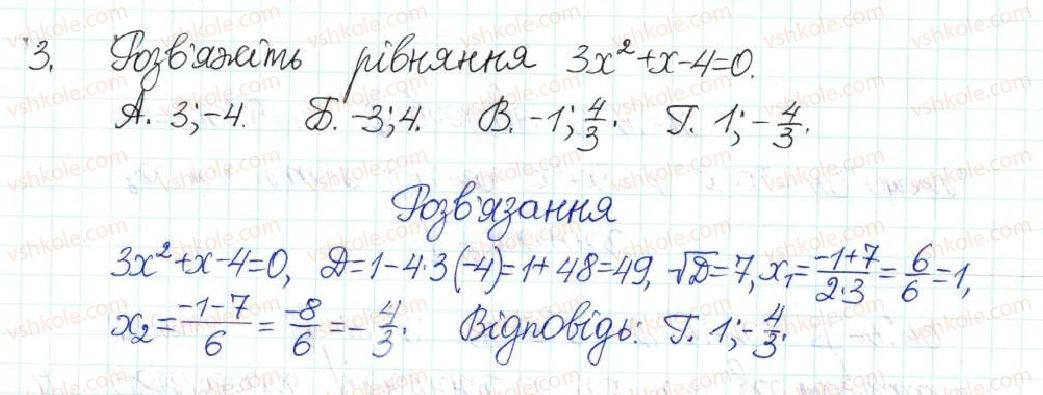 3. Розв'яжіть рівняння 3x²+x-4=0.
А. 3;-4. Б. -3;4. В. -1;4/3. Г. 1;-4/3.
Розв'язання
3x²+x-4=0, Д=1-4·3(-4)=1+48=49, √Д=7, x₁=(-1+7)/(2·3)=6/6=1,
x₂=(-1-7)/6=-8/6=-4/3. Відповідь: Г. 1;-4/3.